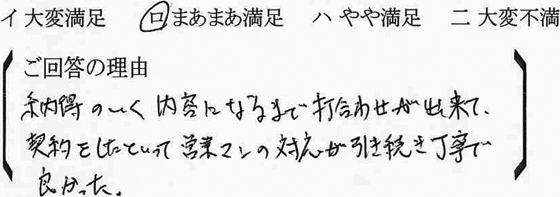 イ 大変満足　ロ まあまあ満足　ハ やや満足　ニ 大変不満
ご回答の理由
納得のいく内容になるまで打合わせが出来て、
契約をしたといって営業マンの対応が引き続き丁寧で
良かった。